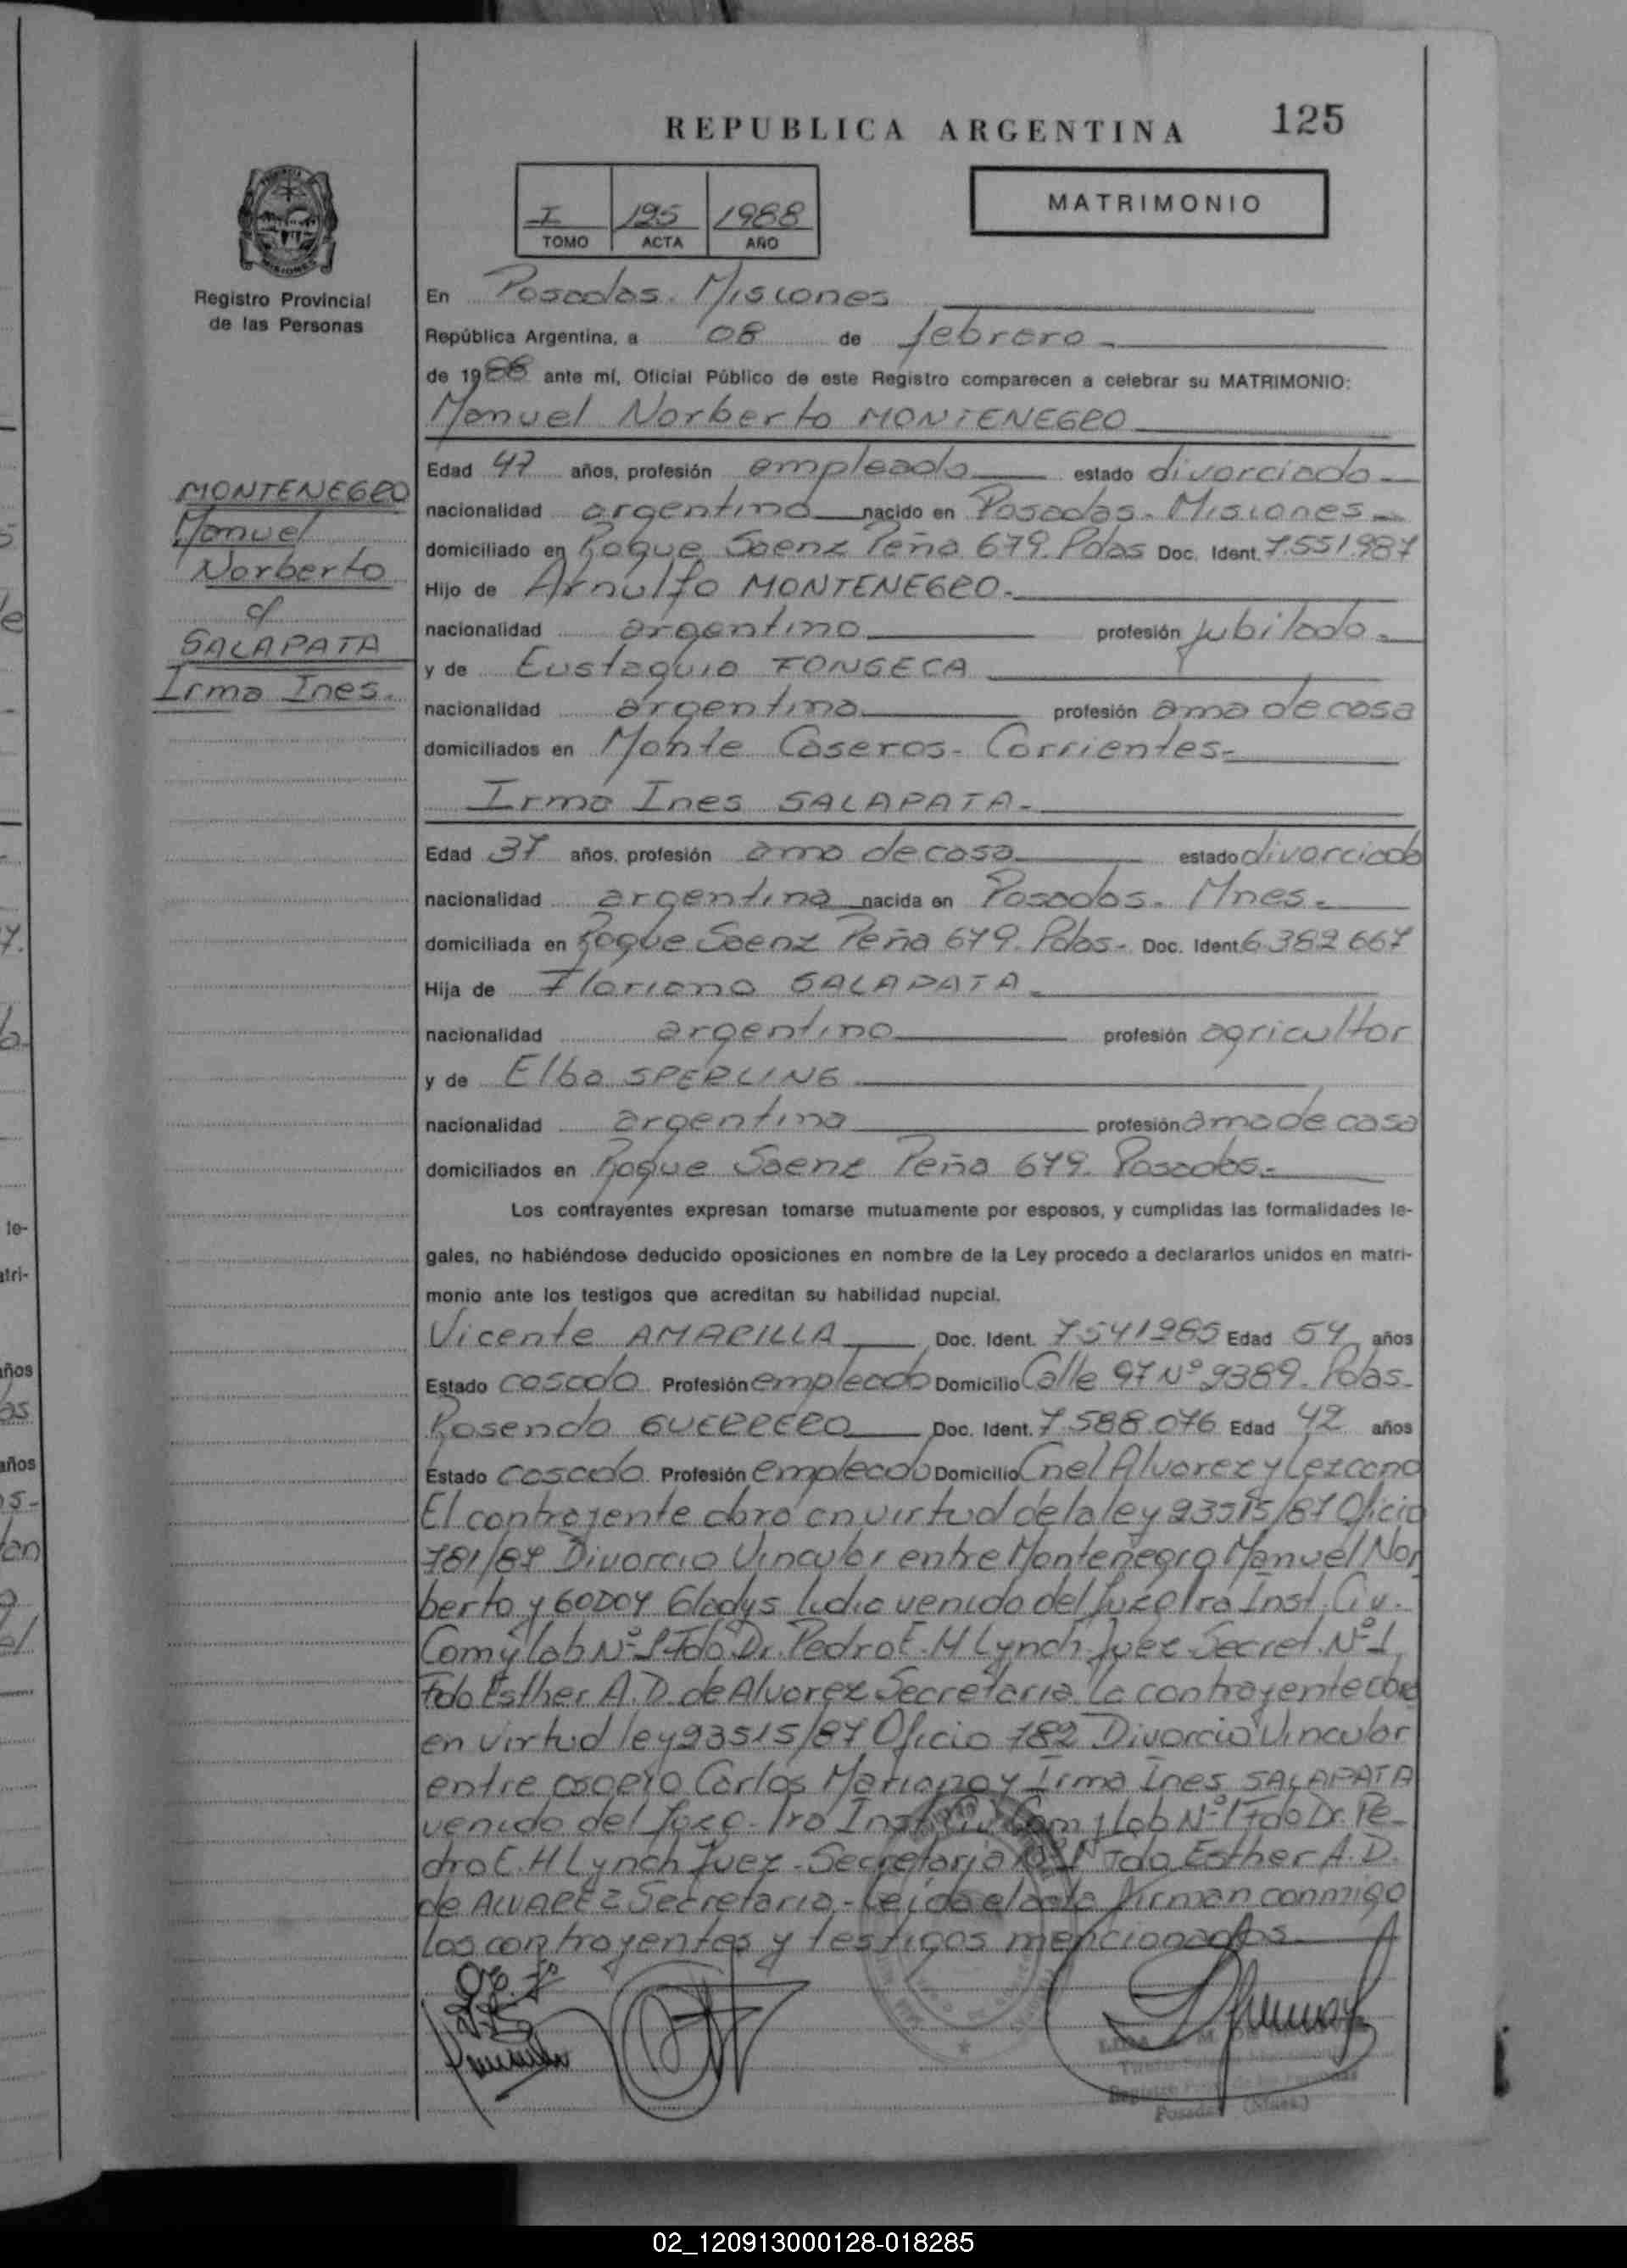 REPUBLICA ARGENTINA
125
MATRIMONIO
I 125 1988
TOMO ACTA AÑO
MISIONES
Registro Provincial
de las Personas
En Posadas. Misiones
República Argentina, a 08 de febrero
de 1988 ante mí, Oficial Público de este Registro comparecen a celebrar su MATRIMONIO:
Manuel Norberto MONTENEGRO
MONTENEGRO
Manuel
Norberto
c/
SALAPATA
Irma Ines.
Edad 47 años, profesión empleado estado divorciado
nacionalidad argentino nacido en Posadas - Misiones
domiciliado en Roque Saenz Peña 679. Pdas Doc. Ident. 7.551.987
Hijo de Arnulfo MONTENEGRO.
nacionalidad argentino profesión jubilado
y de Eustaquia FONSECA
nacionalidad argentina profesión ama de casa
domiciliados en Monte Caseros - Corrientes-
Irma Ines SALAPATA-
Edad 37 años, profesión ama de casa estado divorciada
nacionalidad argentina nacida en Posadas. Mnes.
domiciliada en Roque Saenz Peña 679. Pdas- Doc. Ident. 6.382.667
Hija de Floriano SALAPATA
nacionalidad argentino profesión agricultor
y de Elba SPERLING
nacionalidad argentina profesión ama de casa
domiciliados en Roque Saenz Peña 679. Posadas-
Los contrayentes expresan tomarse mutuamente por esposos, y cumplidas las formalidades le-
gales, no habiéndose deducido oposiciones en nombre de la Ley procedo a declararlos unidos en matri-
monio ante los testigos que acreditan su habilidad nupcial.
Vicente AMARILLA Doc. Ident. 7541985 Edad 54 años
Estado casado Profesión empleado Domicilio Calle 97 Nº 9389. Pdas.
Rosendo GUERRERO Doc. Ident. 7.588.076 Edad 42 años
Estado casado Profesión empleado Domicilio Cnel Alvarez y Lezcano
El contrayente obra en virtud de la ley 23515/87 Oficio
781/87 Divorcio Vincular entre Montenegro Manuel Nor
berto y GODOY Gladys Lidia venido del Juzg 1ra Inst. Civ.
Com y lab Nº 1 Fdo Dr. Pedro E. H Lynch Juez Secret. Nº 1
Fdo Esther A.D. de Alvarez Secretaria. La contrayente obra
en virtud ley 23515/87 Oficio 782 Divorcio Vincular
entre Carlos Mariano y Irma Ines SALAPATA
venido del Juzg. 1ra Inst Civ Com y Lab Nº 1 Fdo Dr. Pe-
dro E. H Lynch Juez - Secretaria Nº 1 Fdo Esther A.D.
de ALVAREZ Secretaria - Leida el acta firman conmigo
los contrayentes y testigos mencionados.
Posadas (Mnes.)
02_120913000128-018285